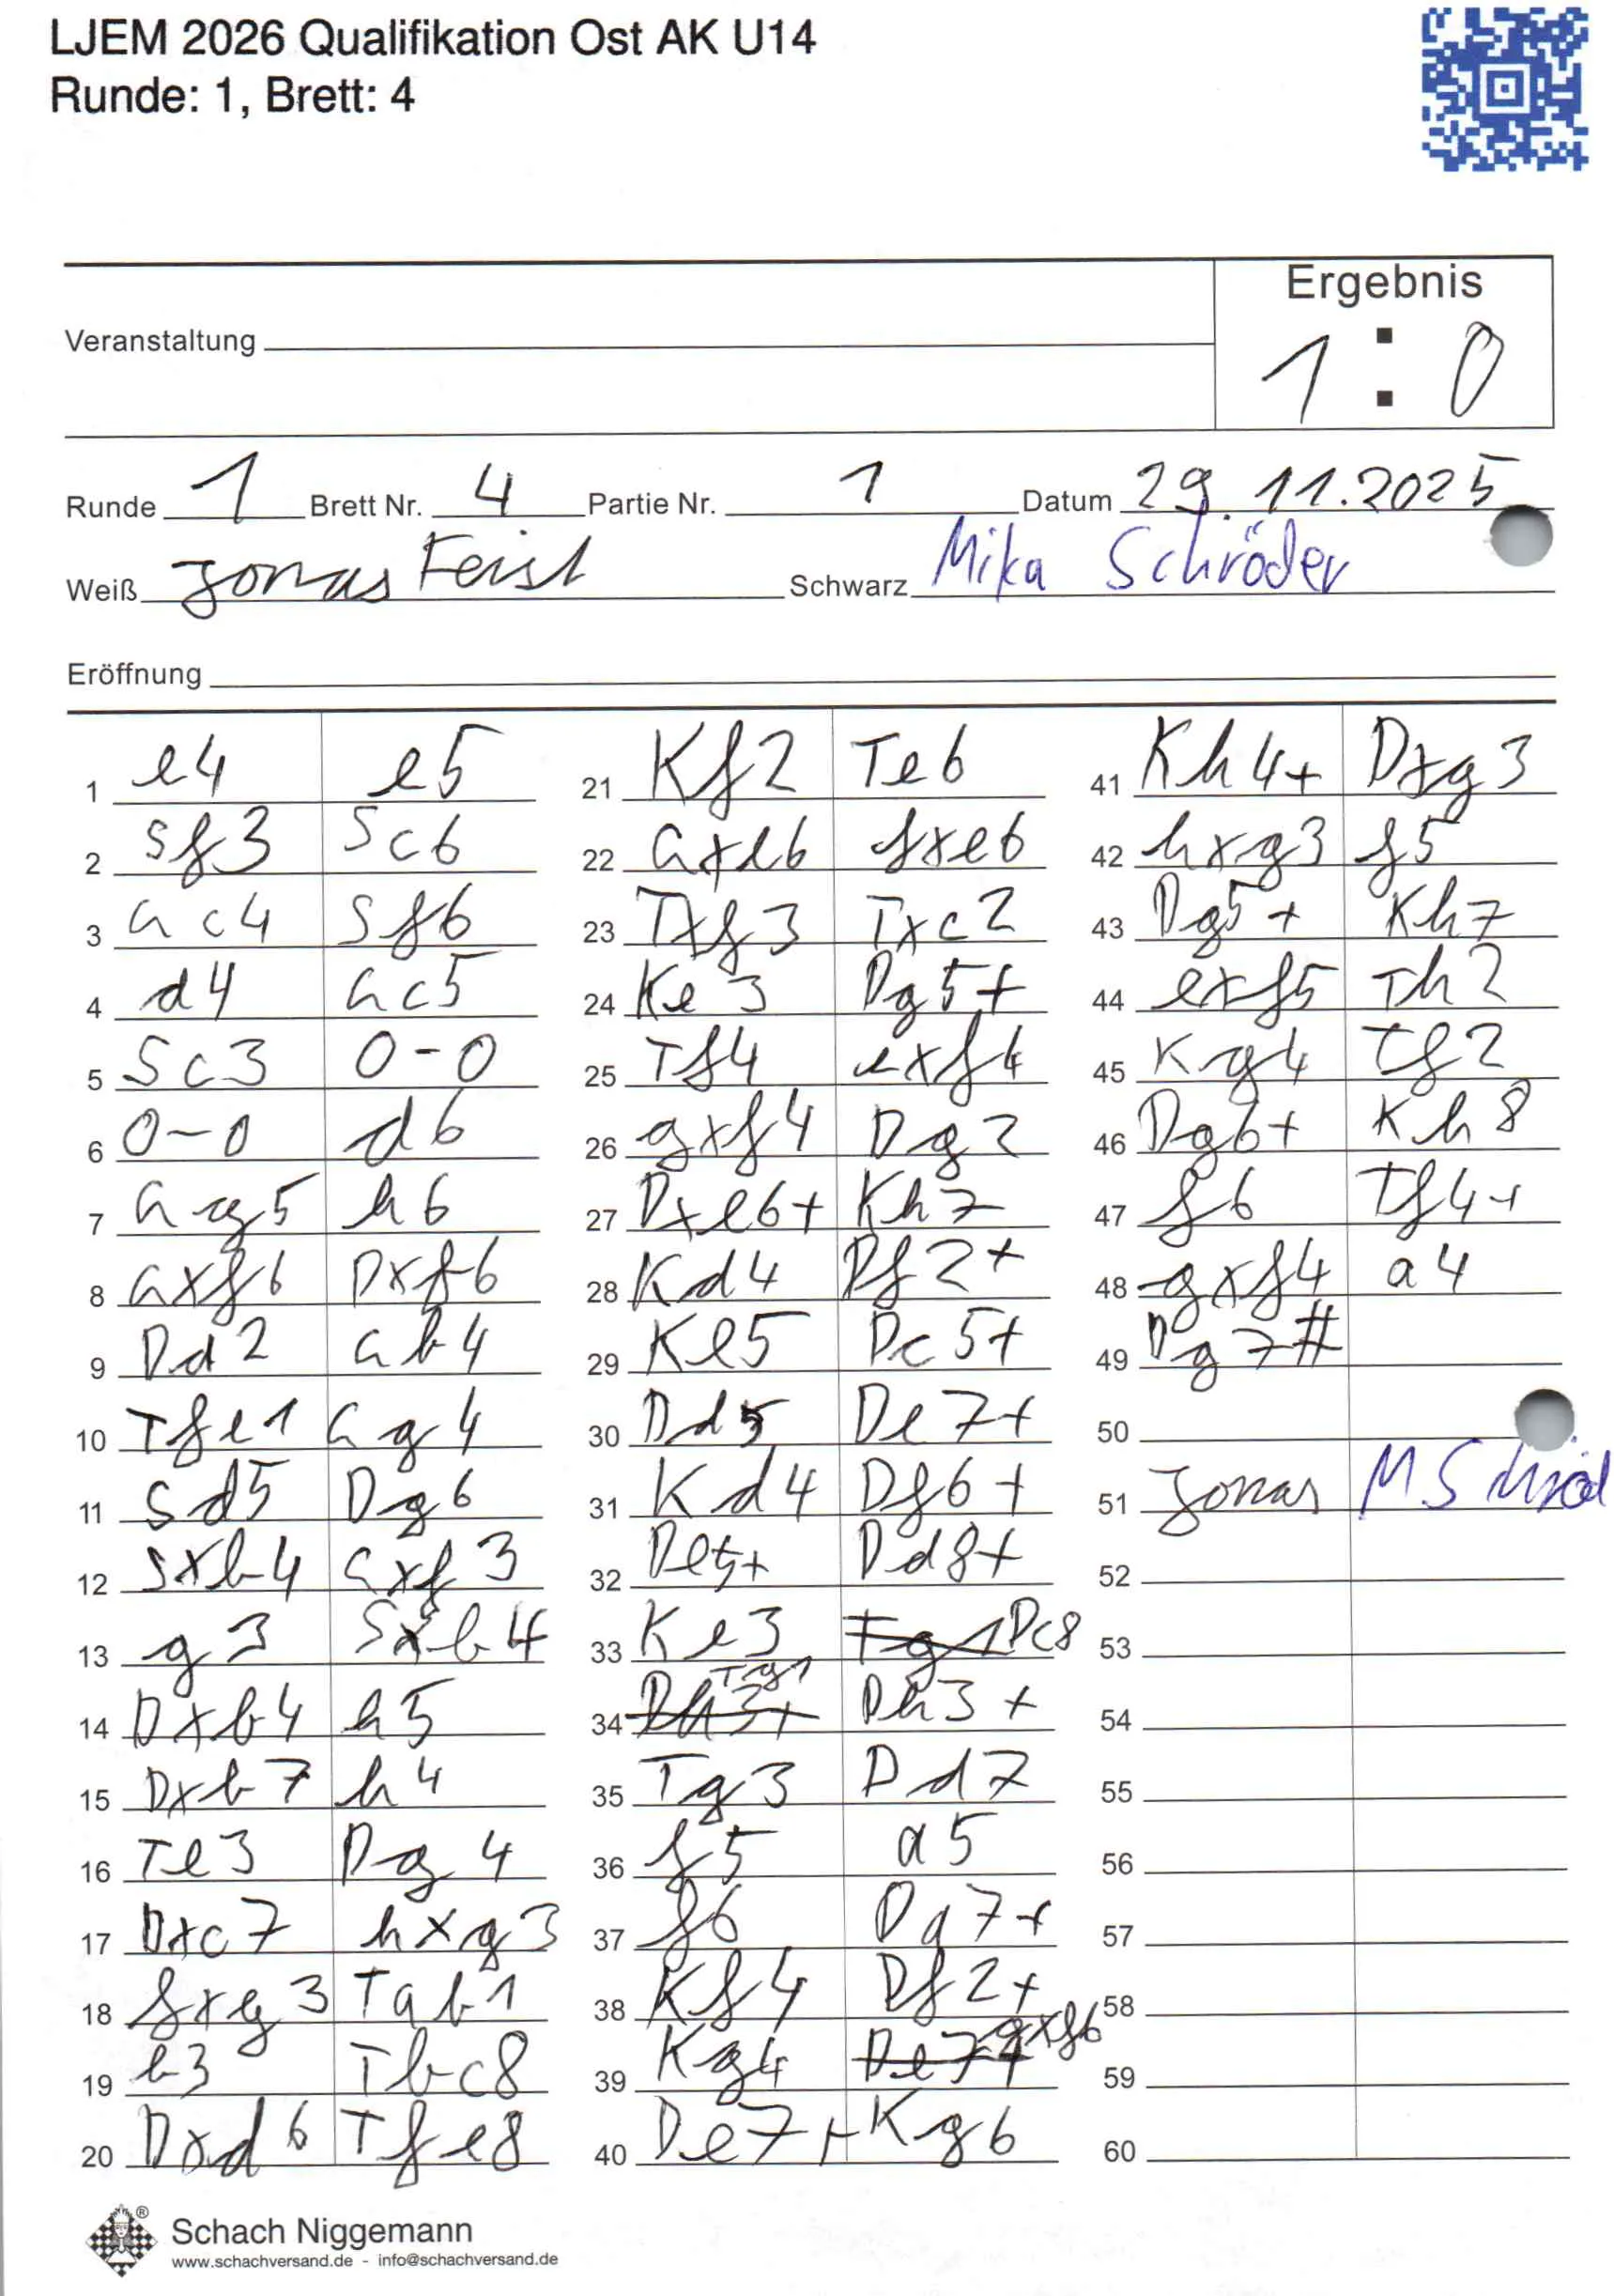 LJEM 2026 Qualifikation Ost AK U14
Runde: 1, Brett: 4
Ergebnis
Veranstaltung
1 : 0
Runde 1 Brett Nr. 4 Partie Nr. 1 Datum 29.11.2025
Weiß Jonas Feist Schwarz Mika Schröder
Eröffnung
1 e4 e5
2 Sf3 Sc6
3 Lc4 Sf6
4 d4 Lc5
5 Sc3 0-0
6 0-0 d6
7 Lg5 h6
8 Lxf6 Dxf6
9 Dd2 Lb4
10 Tfe1 Lg4
11 Sd5 Dg6
12 Sxb4 Lxf3
13 g3 Sxb4
14 Dxb4 h5
15 Dxb7 h4
16 Te3 Dg4
17 Dxc7 hxg3
18 fxg3 Tab1
19 b3 Tbc8
20 Dxd6 Tfe8
21 Kf2 Te6
22 Lxe6 fxe6
23 Txf3 Txc2
24 Ke3 Dg5+
25 Tf4 exf4
26 gxf4 Dg2
27 Dxe6+ Kh7
28 Kd4 Df2+
29 Ke5 Dc5+
30 Dd5 De7+
31 Kd4 Df6+
32 De5+ Dd8+
33 Ke3 Tg1 Dc8
34 Dh3+ Tg1 Dh3+
35 Tg3 Dd7
36 f5 a5
37 f6 Da7+
38 Kf4 Df2+
39 Kg4 De7+ gxf6
40 De7+ Kg6
41 Kh4+ Dxg3
42 hxg3 f5
43 Dg5+ Kh7
44 exf5 Th2
45 Kg4 Tf2
46 Dg6+ Kh8
47 f6 Tf4+
48 gxf4 a4
49 Dg7#
50
51 Jonas M Schröd
52
53
54
55
56
57
58
59
60
Schach Niggemann
www.schachversand.de - info@schachversand.de